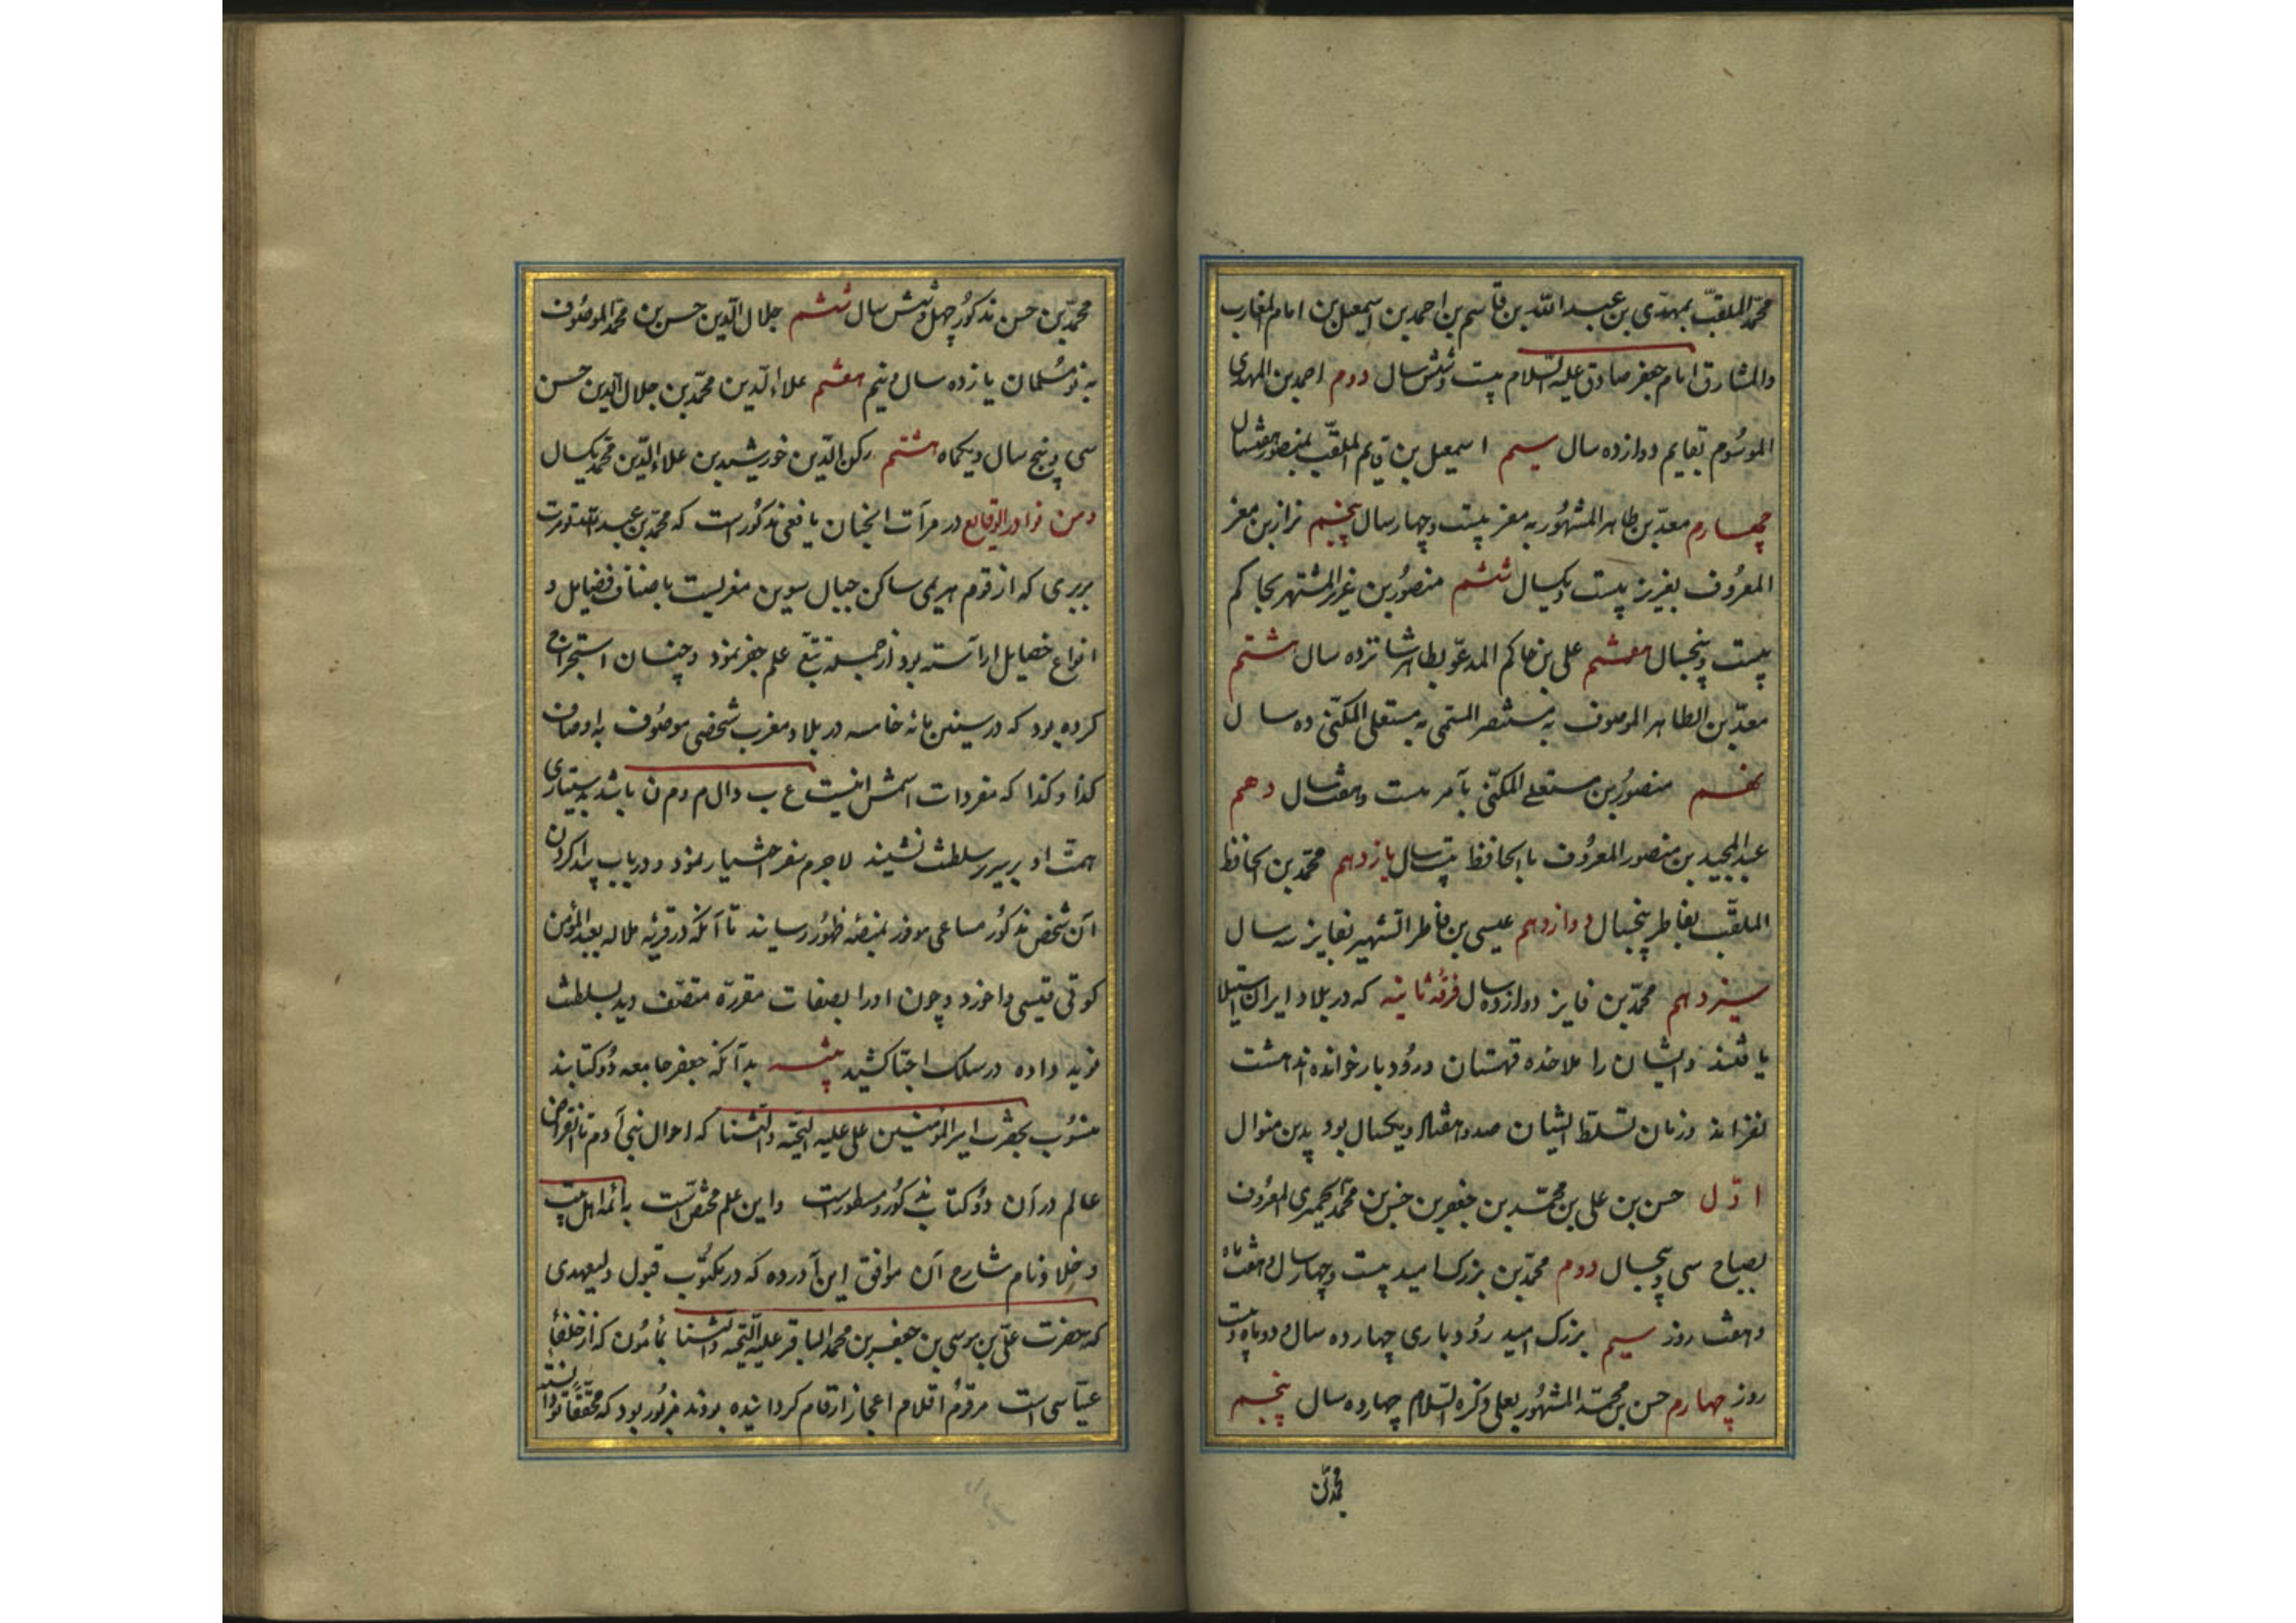 محمد الملقب بمهدی بن عبد الله بن قاسم بن احمد بن اسمعیل بن امام المغارب
والمشارق امام جعفر صادق علیه السلام بیست و شش سال دوم احمد بن المهدی
الموسوم بقایم دوازده سال سیم اسمعیل بن قایم الملقب بمنصور هفت سال
چهارم معد بن طاهر المشهور به معز بیست و چهار سال پنجم نزار بن معز
المعروف بعزیز بیست و یکسال ششم منصور بن عزیز المشتهر بحاکم
بیست و پنجسال هفتم علی بن حاکم المدعو بطاهر شانزده سال هشتم
معد بن الطاهر الموصوف به مستنصر المسمی به مستعلی المکنی ده سال
نهم منصور بن مستعلی المکنی بآمر بیست و هفت سال دهم
عبد المجید بن منصور المعروف باالحافظ بیست سال یازدهم محمد بن الحافظ
الملقب بفاطر پنجسال دوازدهم عیسی بن فاطر الشهیر بفایز سه سال
سیزدهم محمد بن فایز دوازده سال فرقه ثانیه که در بلاد ایران استیلا
یافتند و ایشان را ملاحده قهستان و رودبار خوانده اند هشت
نفراند و زمان تسلط ایشان صد و هفتاد و یکسال بود بدین منوال
اول حسن بن علی بن محمد بن جعفر بن حسن بن محمد الحمیری المعروف
بصباح سی و پنجسال دوم محمد بن بزرک امید بیست و چهار سال و هشت ماه
و هفت روز سیم بزرک امید رودباری چهارده سال و دو ماه و بیست
روز چهارم حسن بن محمد المشهور بعلی ذکره السلام چهارده سال پنجم
محمد بن
محمد بن حسن مذکور چهل و شش سال ششم جلال الدین حسن بن محمد الموصوف
به نو مسلمان یازده سال و نیم هفتم علاء الدین محمد بن جلال الدین حسن
سی و پنج سال و یکماه هشتم رکن الدین خورشید بن علاء الدین محمد یکسال
ومن نوادر الوقایع در مرآت الجنان یافعی مذکور است که محمد بن عبد الله تومرت
بربری که از قوم هریمی ساکن جبال سوین مغربست باصناف فضایل و
انواع خصایل اراسته بود از جمله تتبع علم جفر نمود و چنان استخراج
کرده بود که در سنین مائه خامسه در بلاد مغرب شخصی موصوف به اوصاف
کذا و کذا که مفردات اسمش اینست ع ب د ال م و م ن باشد به ستیاری
همت او بر سریر سلطنت نشیند لاجرم سفر اختیار نمود و در باب پیدا کردن
آن شخص مذکور مساعی موفور بمنصه ظهور رسانید تا آنکه در قریه ملاله بعبد المؤمن
کوفی قیسی واخورد و چون او را بصفات مقرره متصف دید بسلطنت
نوید داده در سلک احبا کشید بدآنکه جعفر جامعه دو کتابند
منسوب بحضرت امیر المؤمنین علی علیه التحیه والثنا که احوال بنی آدم تا انقراض
عالم در آن دو کتاب مذکور و مسطور است و این علم مختص است به ائمه اهل بیت
شارح آن موافق این آورده که در مکتوب قبول ولیعهدی
که حضرت علی بن موسی بن جعفر بن محمد الباقر علیه التحیه والثنا بمأمون که از خلفاء
عباسی است مرقوم اقلام اعجاز ارقام کردانیده بودند مزبور بود که